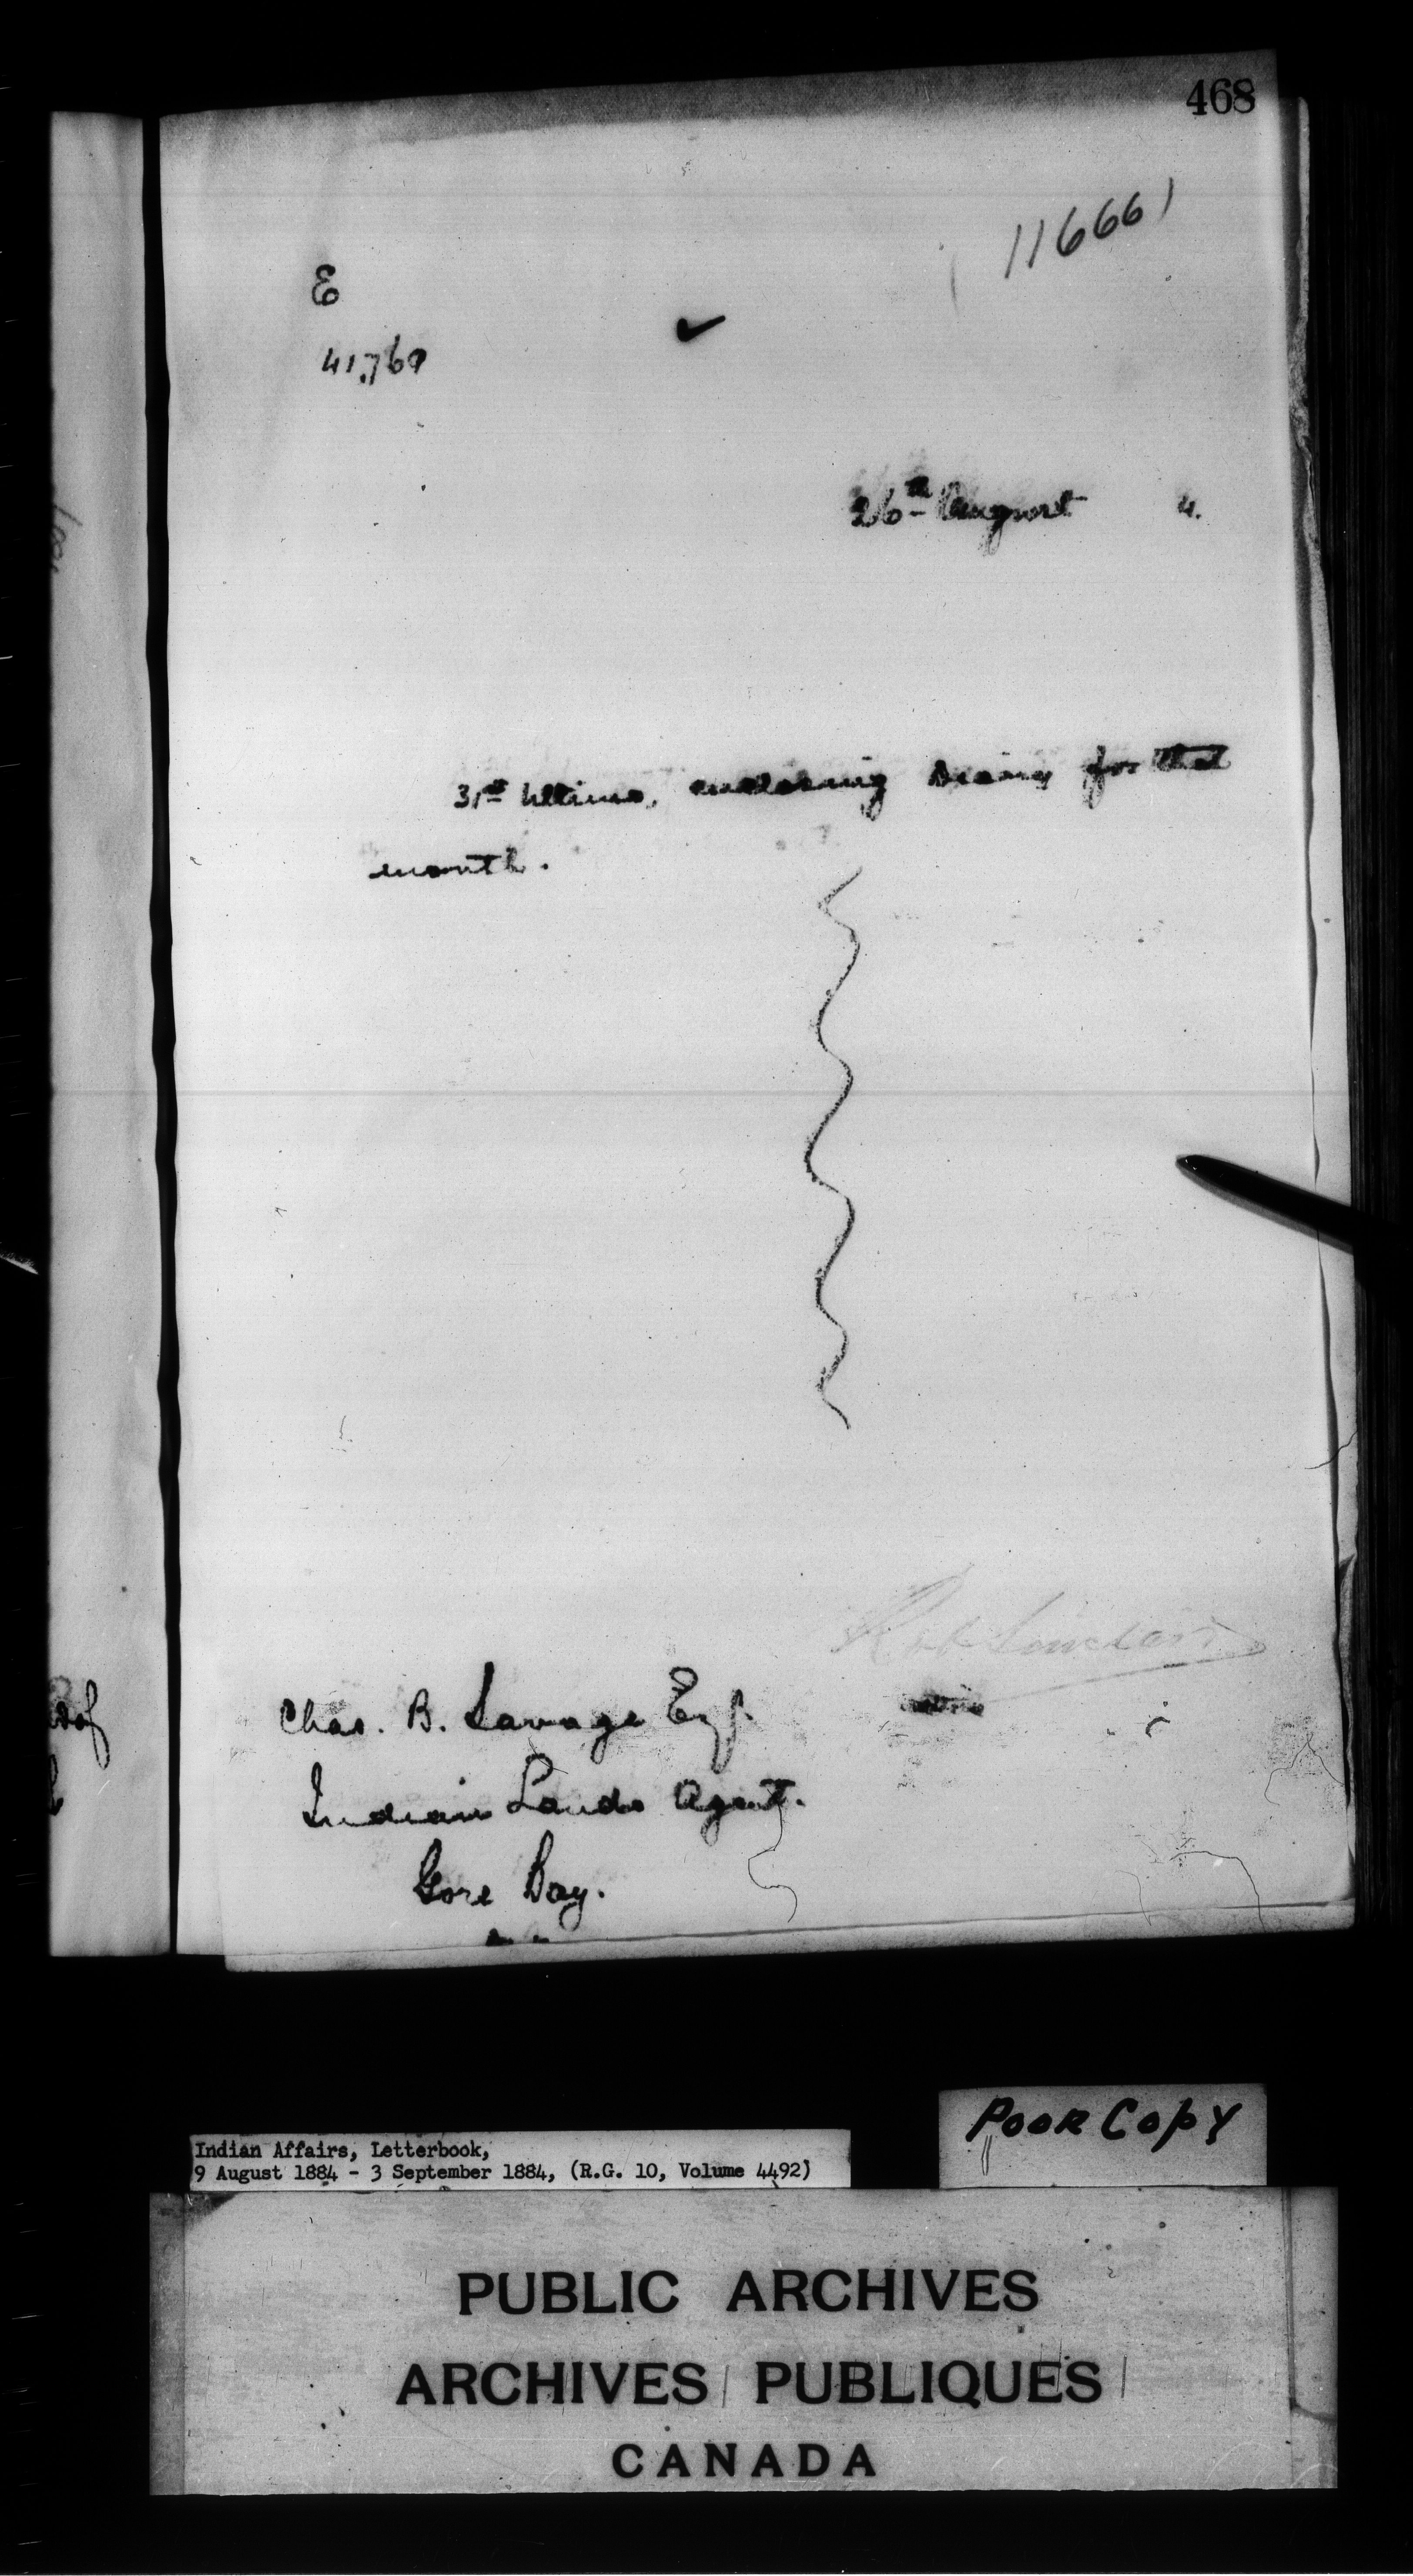 468
116661
E
41,769
26th August 4.
31st Ultimo, enclosing Diary for that
month.
Robt Sinclair
Chas. B. Savage Esq.
Indian Lands Agent.
Gore Bay.
Poor Copy
Indian Affairs, Letterbook,
9 August 1884 - 3 September 1884, (R.G. 10, Volume 4492)
PUBLIC ARCHIVES
ARCHIVES PUBLIQUES
CANADA